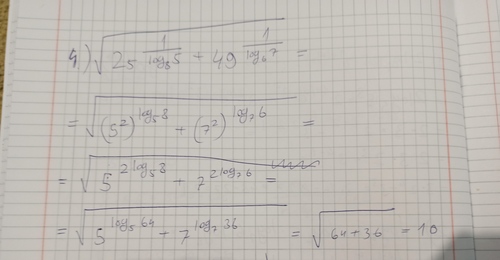 4) √(25^(1/log₈5) + 49^(1/log₆7)) =
= √((5²)^(log₅8) + (7²)^(log₇6)) =
= √(5^(2log₅8) + 7^(2log₇6)) =
= √(5^(log₅64) + 7^(log₇36)) = √(64+36) = 10